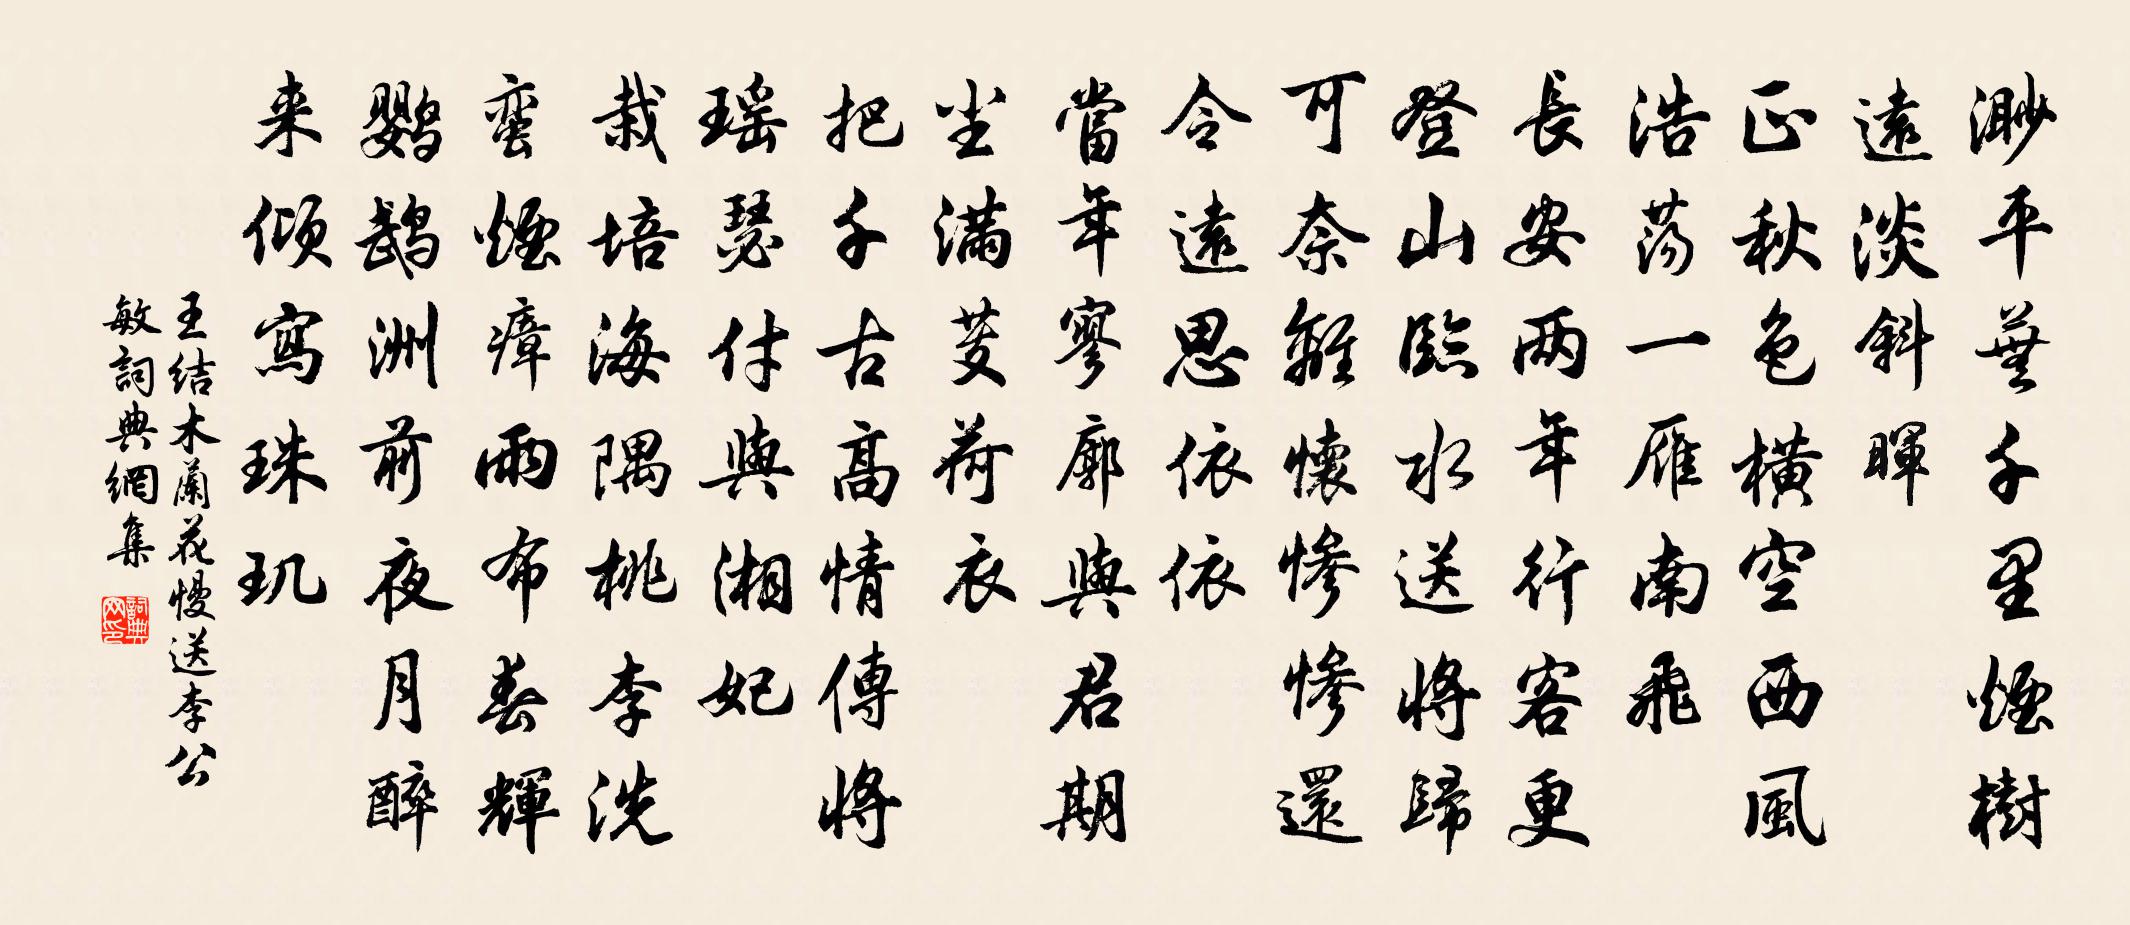 渺平蕪千里煙樹
遠淡斜暉
正秋色橫空西風
浩蕩一雁南飛
長安兩年行客更
登山臨水送將歸
可奈離懷慘慘還
令遠思依依
當年寥廓與君期
塵滿芰荷衣
把千古高情傳將
瑤瑟付與湘妃
栽培海隅桃李洗
蠻煙瘴雨布春輝
鸚鵡洲前夜月醉
来傾寫珠璣
王结木蘭花慢送李公
敏詞典網集
詞典网印